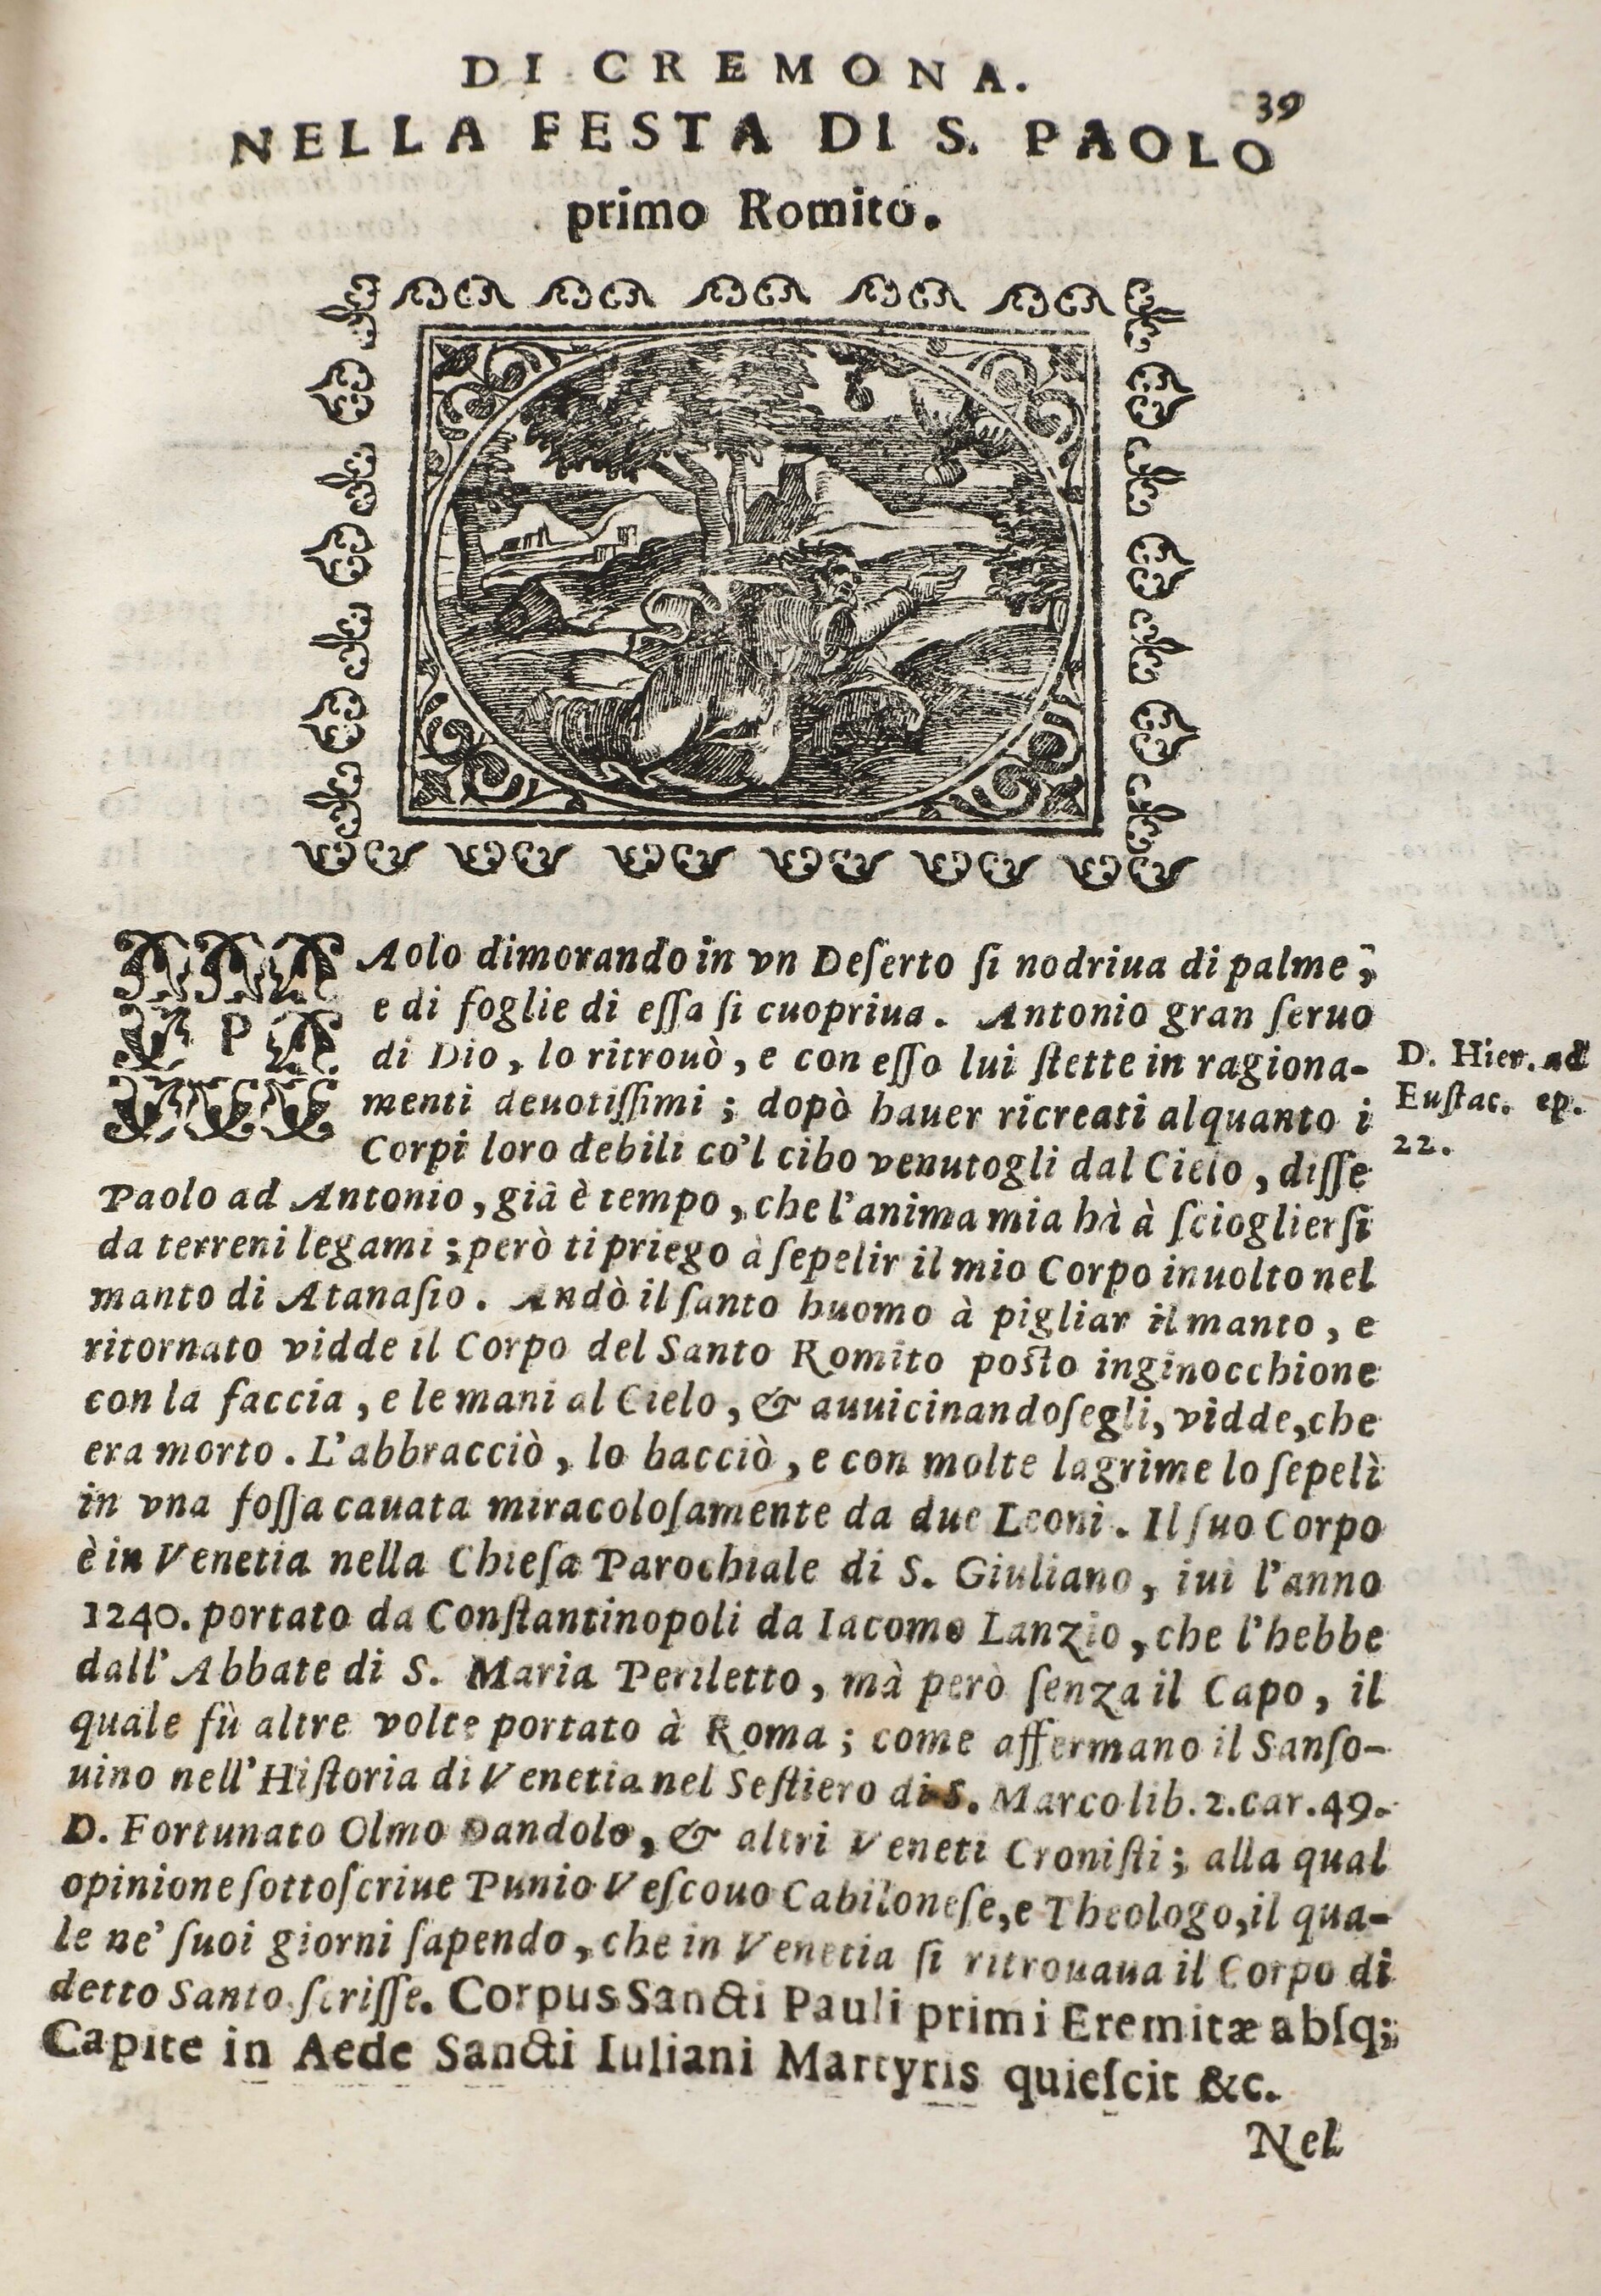 DI CREMONA.
39
NELLA FESTA DI S. PAOLO
primo Romito.
PAolo dimorando in vn Deſerto ſi nodriua di palme,
e di foglie di eſſa ſi cuopriua. Antonio gran ſeruo
di Dio, lo ritrouò, e con eſſo lui ſtette in ragiona-
menti deuotiſſimi; dopò hauer ricreati alquanto i
Corpi loro debili co'l cibo venutogli dal Cielo, diſſe
Paolo ad Antonio, già è tempo, che l'anima mia hà à ſcioglierſi
da terreni legami; però ti priego à ſepelir il mio Corpo inuolto nel
manto di Atanaſio. Andò il ſanto huomo à pigliar il manto, e
ritornato vidde il Corpo del Santo Romito poſto inginocchione
con la faccia, e le mani al Cielo, & auuicinandoſegli, vidde, che
era morto. L'abbracciò, lo bacciò, e con molte lagrime lo ſepelì
in vna foſſa cauata miracoloſamente da due Leoni. Il ſuo Corpo
è in Venetia nella Chieſa Parochiale di S. Giuliano, iui l'anno
1240. portato da Conſtantinopoli da Iacomo Lanzio, che l'hebbe
dall'Abbate di S. Maria Periletto, mà però ſenza il Capo, il
quale fù altre volte portato à Roma; come affermano il Sanſo-
uino nell'Hiſtoria di Venetia nel Seſtiero di S. Marco lib. 2. car. 49.
D. Fortunato Olmo Dandolo, & altri Veneti Croniſti; alla qual
opinione ſottoſcriue Punio Veſcouo Cabiloneſe, e Theologo, il qua-
le ne' ſuoi giorni ſapendo, che in Venetia ſi ritrouaua il Corpo di
detto Santo ſcriſſe. Corpus Sancti Pauli primi Eremitæ abſq;
Capite in Aede Sancti Iuliani Martyris quieſcit &c.
Nel
D. Hier. ad
Euſtac. ep.
22.